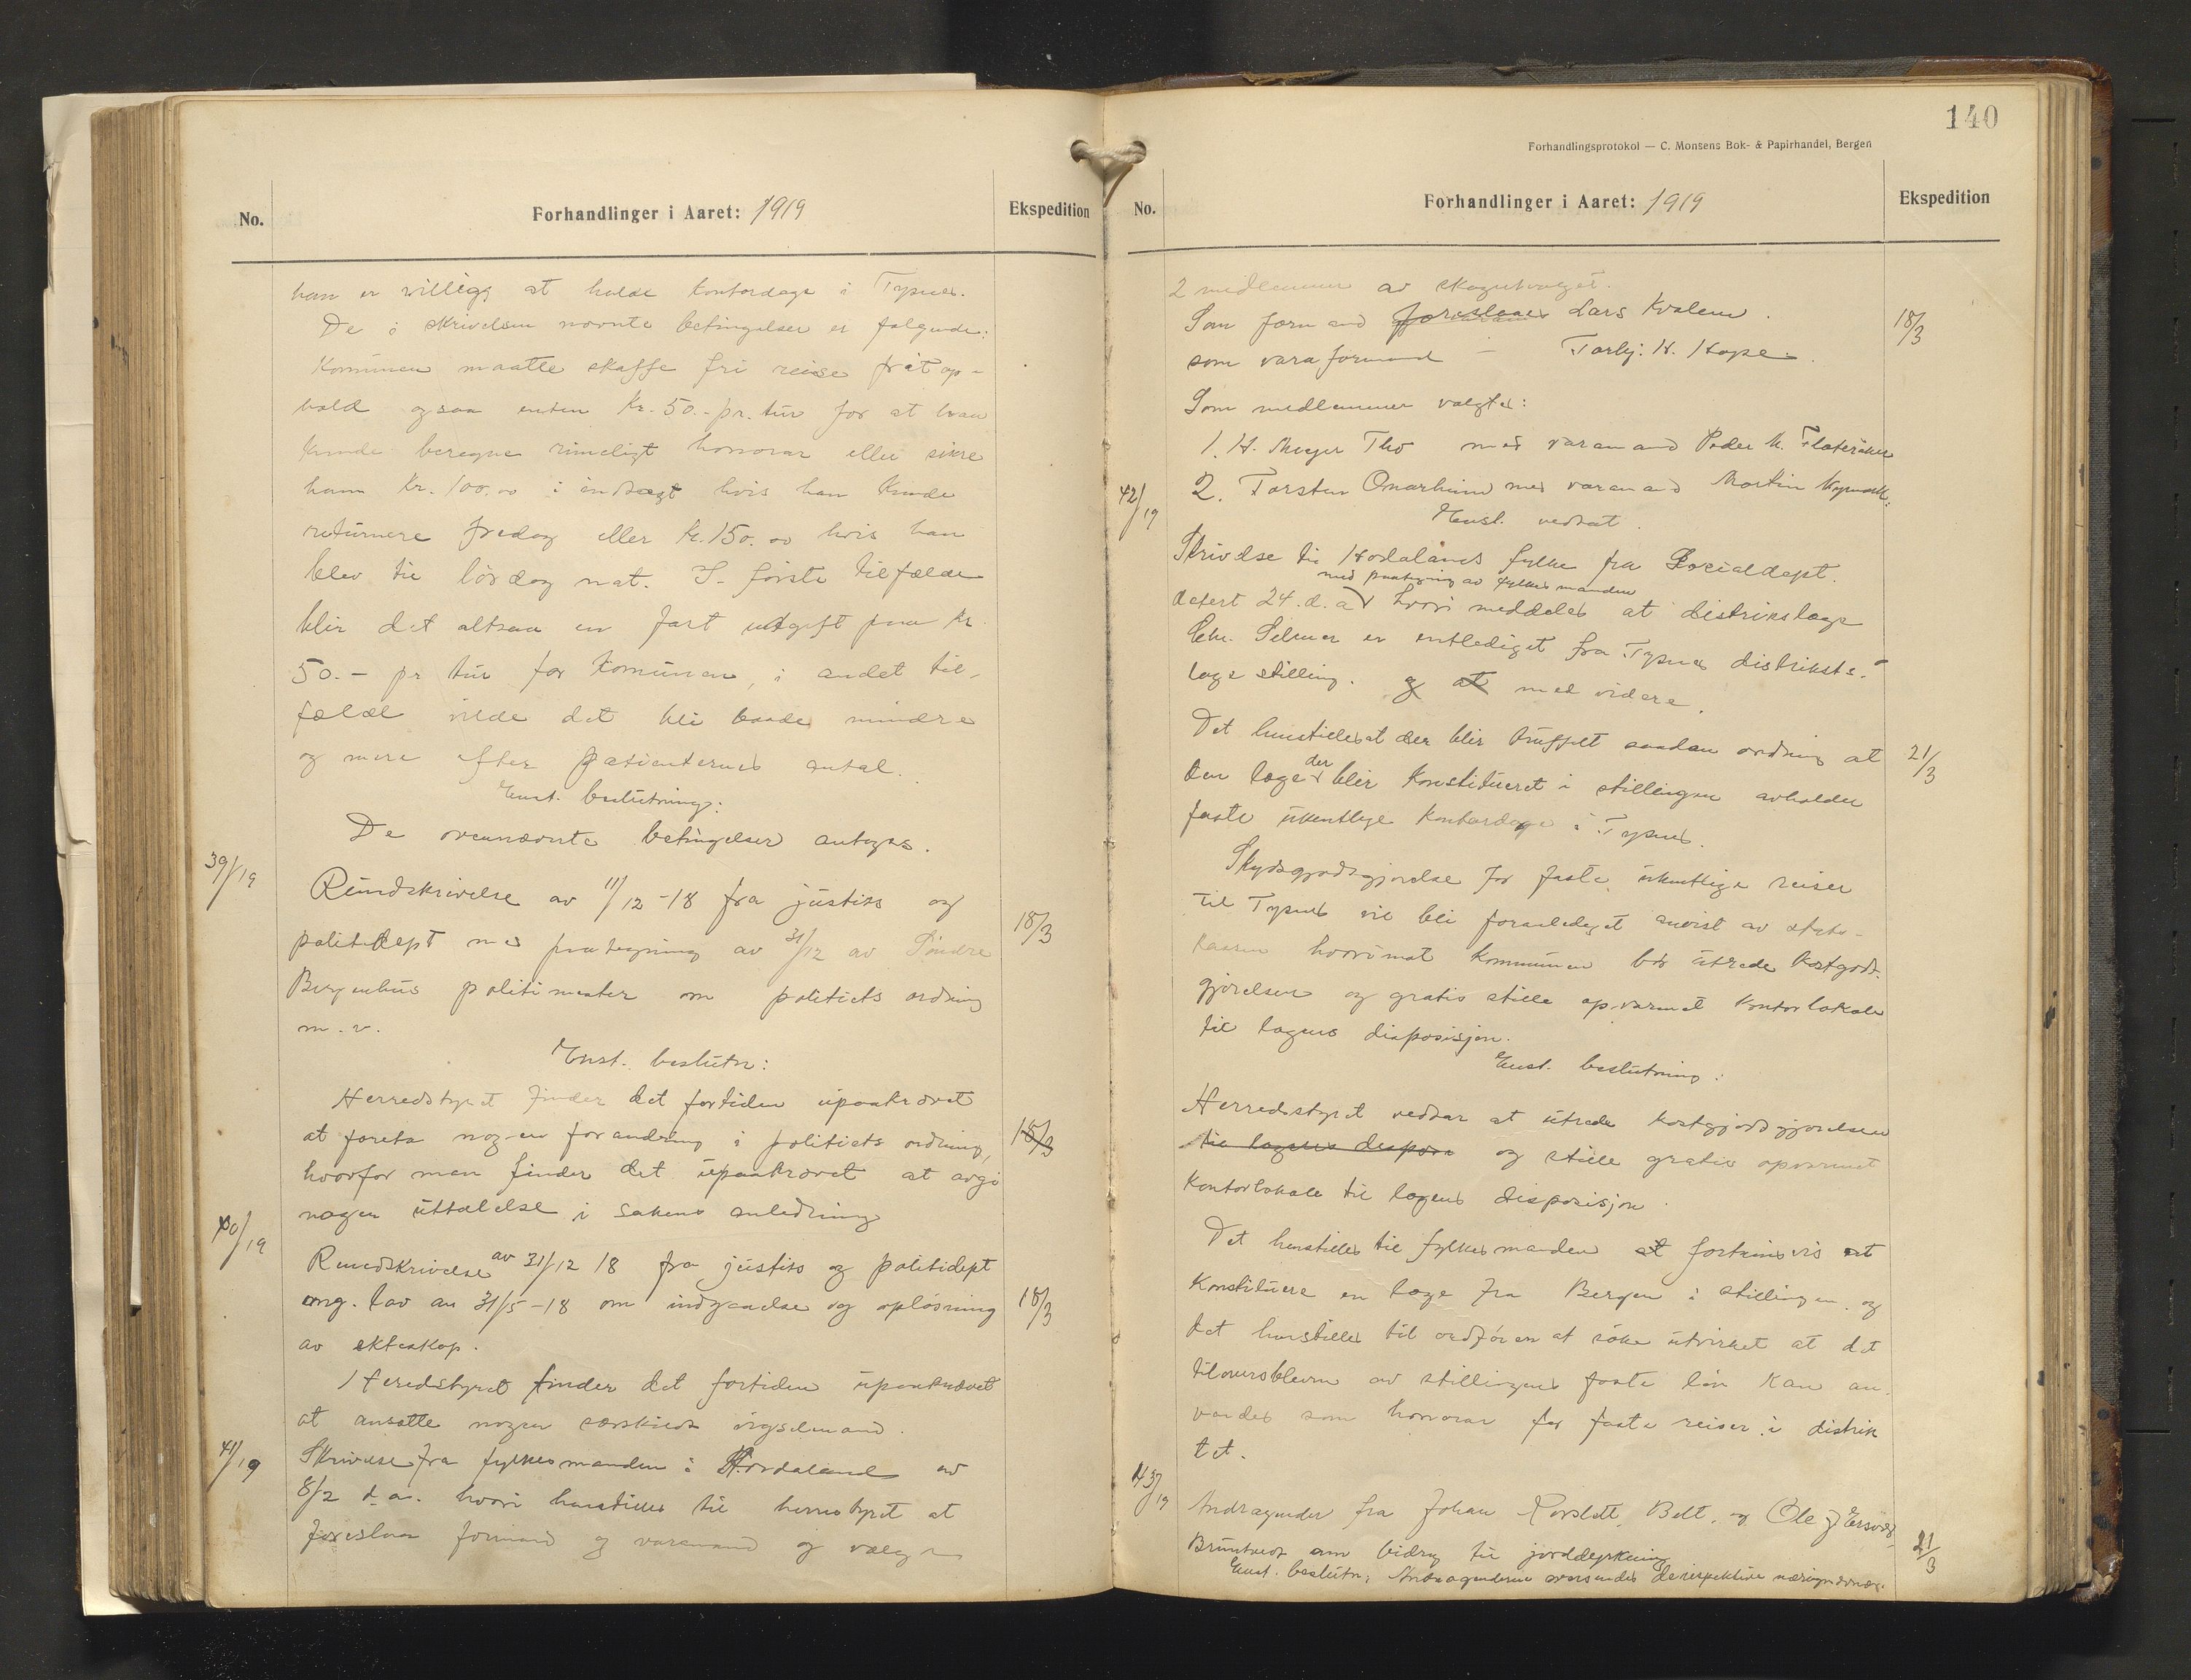 No.
Forhandlinger i Aaret: 1919
Ekspedition
han er villig at holde kontordage i Tysnes.
De i skrivelsen nævnte betingelser er følgende:
Kommunen maatte skaffe fri reise frit op-
hold ogsaa enten Kr. 50.- pr. tur for at han
kunde beregne rimeligt honorar eller sikre
ham Kr. 100.00 i indtægt hvis han kunde
returnere fredag eller kr. 150.00 hvis han
blev til lördag nat. I förste tilfælde
blir det altsaa en fast utgift paa kr.
50.- pr tur for komunen, i andet til-
fælde vilde det bli baade mindre
og mere efter patienternes antal.
Enst. beslutning:
De ovennævnte betingelser antages.
39/19
Rundskrivelse av 11/12-18 fra justits og
politidept med paategning av 31/12 av Söndre
18/3
Bergenhus politimester om politiets ordning
m.v.
Enst. beslutn:
Herredstyret finder det fortiden upaakrævet
at foreta nogen forandring i politiets ordning,
18/3
hvorfor man finder det upaakrævet at avgi
nogen uttalelse i sakens anledning
40/19
Rundskrivelse av 31/12 18 fra justits og politidept
ang. lov av 31/5-18 om indgaaelse og oplösning
18/3
av ekteskap.
Heredstyret finder det fortiden upaakrævet
at ansætte nogen særskilt vigselmand.
41/19
Skrivelse fra fylkesmanden i Hordaland av
8/2 d.a. hvori henstilles til herredstyret at
foreslaa formand og varamand og vælge
140
Forhandlingsprotokol — C. Monsens Bok- & Papirhandel, Bergen
No.
Forhandlinger i Aaret: 1919
Ekspedition
2 medlemmer av skogutvalget.
Som formand foreslaaes Lars Kvalem.
18/3
som varaformand - Torbj. H. Hope.
Som medlemmer valgtes:
1. H. Meyer Tho med varamand Peder M. Flateråker
2. Torsten Onarheim med varamand Mortin
Enst. vedtat.
42/19
Skrivelse til Hordalands fylke fra Socialdept.
med paategning av fylkesmanden
datert 24. d.a hvori meddeles at distrikslæge
Chr. Selmer er entlediget fra Tysnes distrikts-
læge stilling. og at med videre.
Det henstilles at der blir truffet saadan ordning at
21/3
den læge der blir konstitueret i stillingen avholder
faste ukentlige kontordage i Tysnes.
Skydsgodtgjörelse for faste ukentlige reiser
til Tysnes vil bli foranlediget anvist av stats-
kassen hvorimot kommunen bör utrede kostgodt-
gjörelsen og gratis stille opvarmet kontorlokale
til lægens disposisjon.
Enst. beslutning:
Herredstyret vedtar at utrede kostgjodtgjörelsen
til lægens dispos og stille gratis opvarmet
kontorlokale til lægens disposisjon.
Det henstilles til fylkesmanden at fortrinsvis at
konstituere en læge fra Bergen i stillingen. og
det henstilles til ordfören at söke utvirket at det
tiloversblevne av stillingens faste lön kan an-
vendes som honorar for faste reiser i distrik
tet.
43/19
Andragender fra Johan Rorslett, Belt. og Ole J Ersvær,
Bruntveit om bidrag til jorddyrkning
21/3
Enst. beslutn: Andragenderne oversendes de respektive